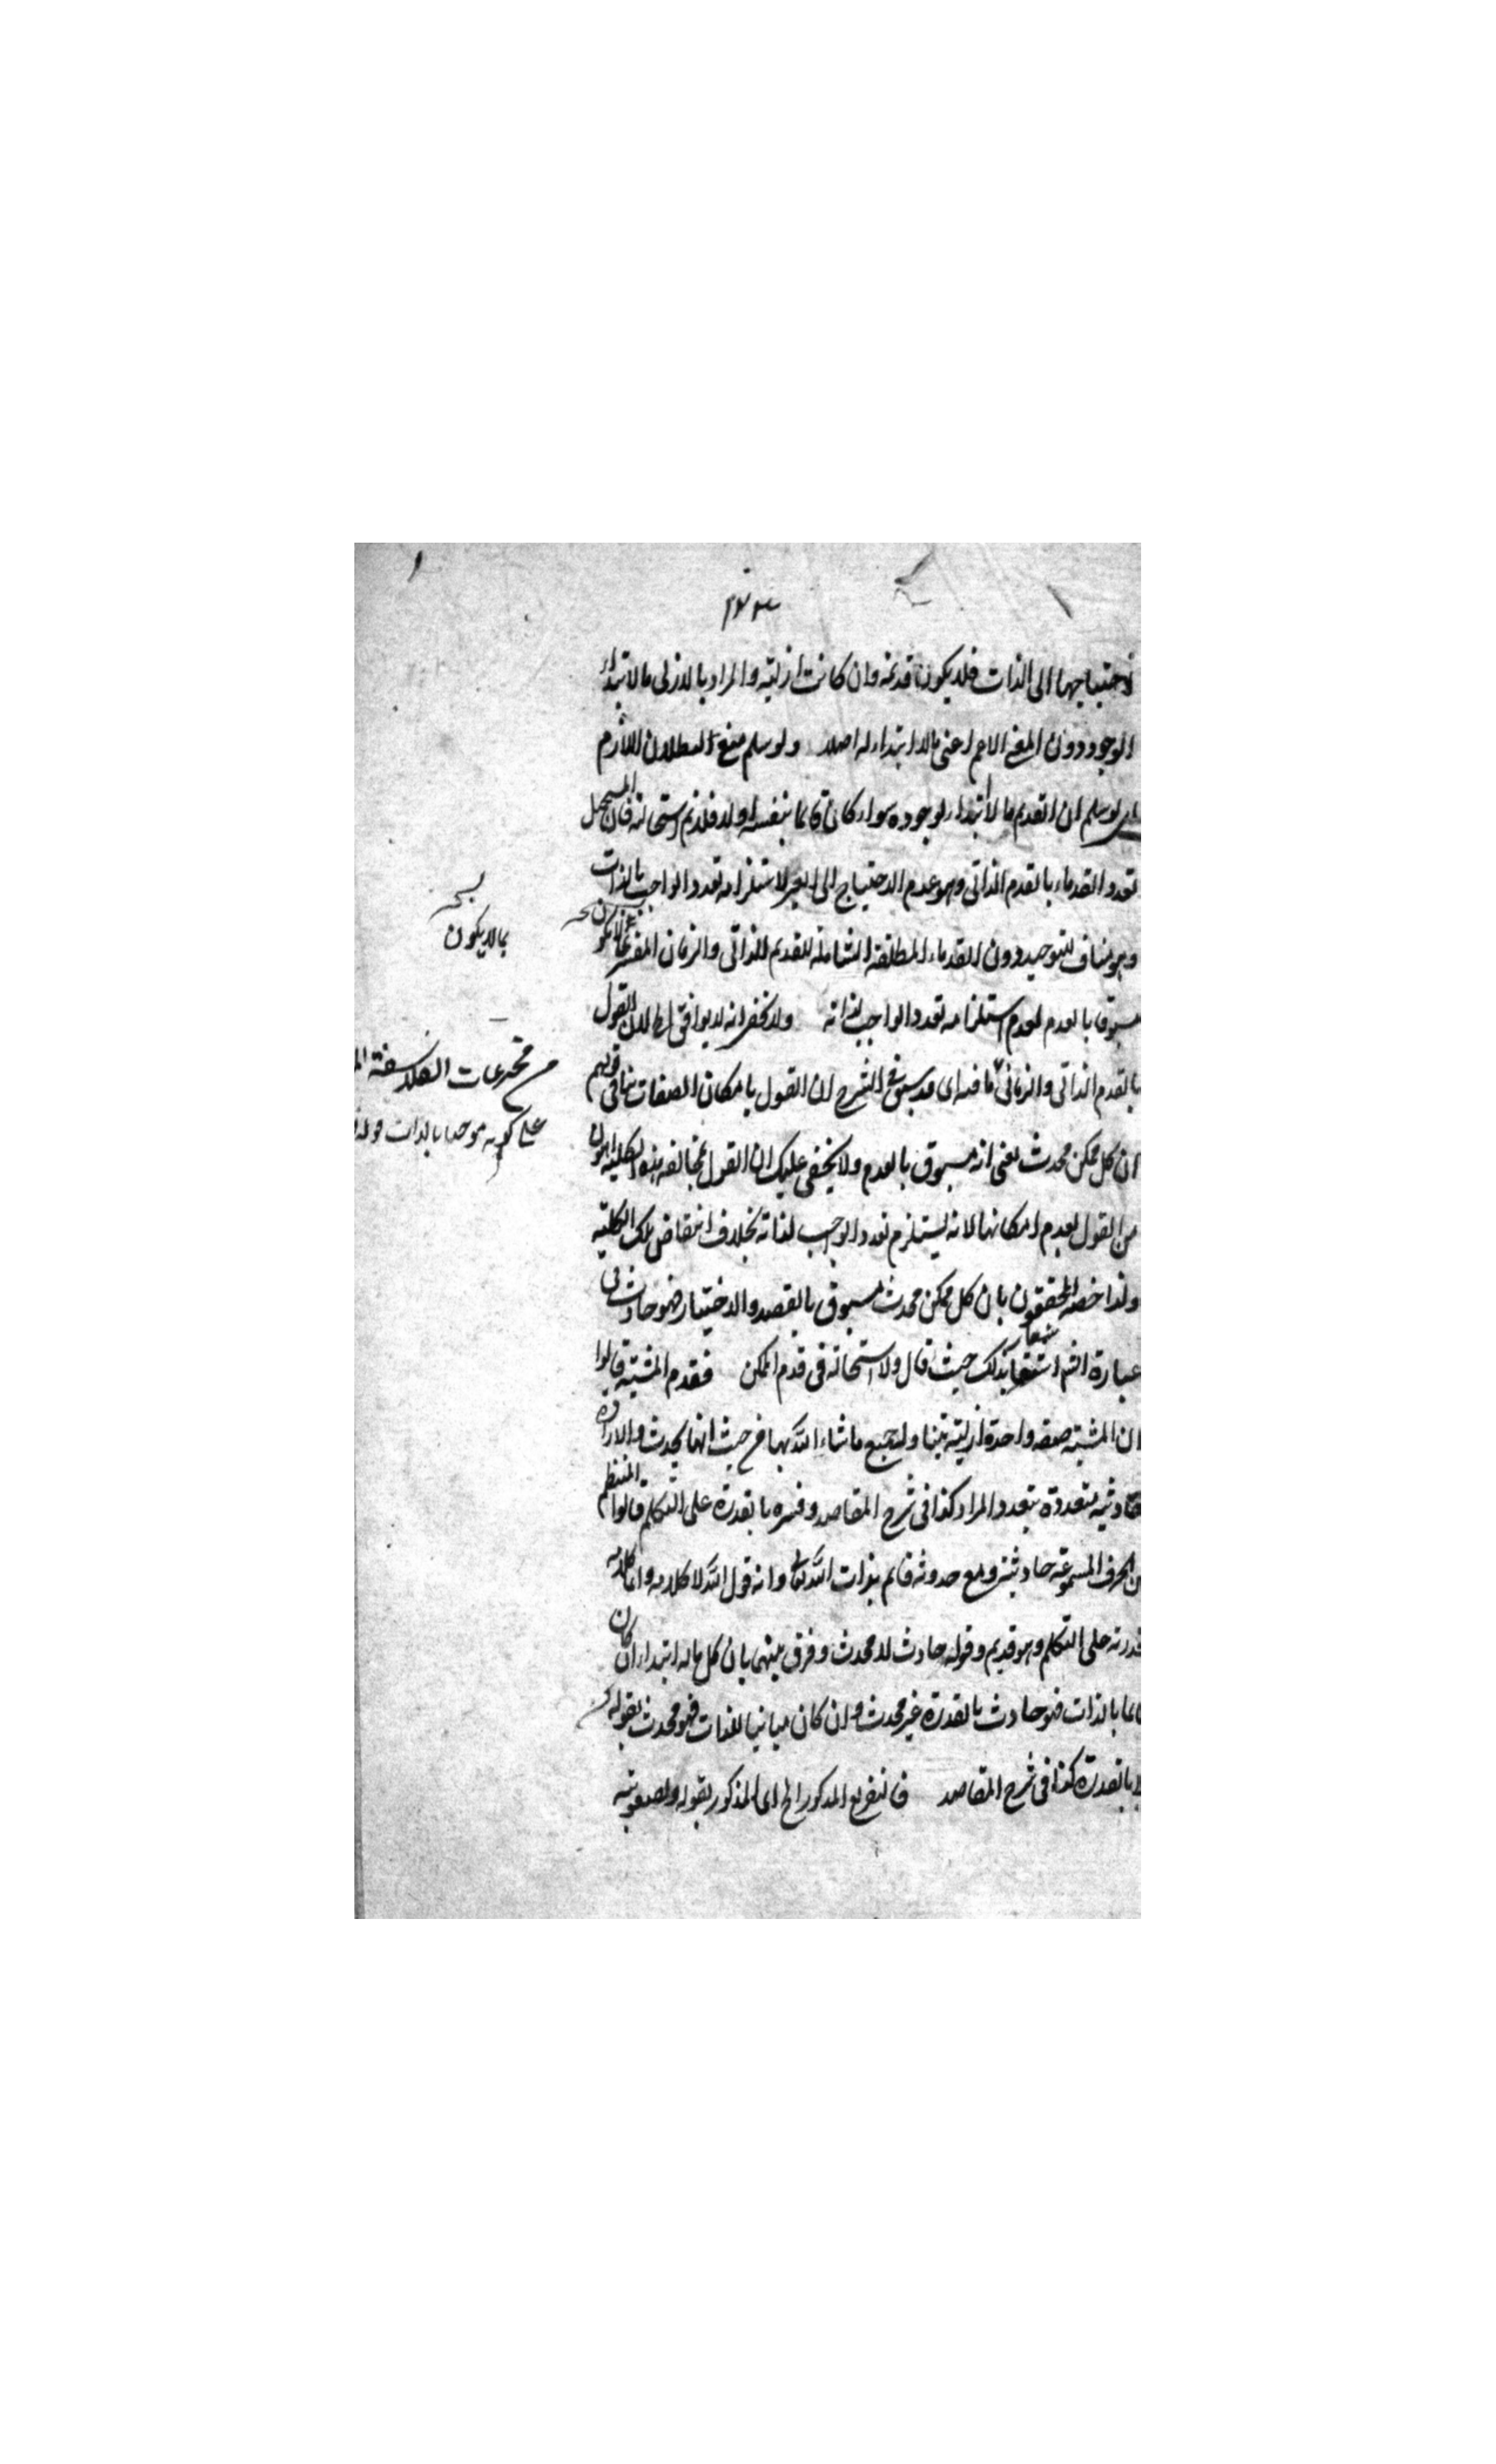 لاحتياجها الى الذات فلا يكون قديمة وان كانت ازلية والمراد بالازلى ما لا ابتداء
الوجود دون المعنى الاعم اعنى ما لا ابتداء له اصلا ولو سلم منع بطلان اللازم
اى لو سلم ان القديم ما لا ابتداء لوجوده سواء كان قائما بنفسه اولا فلا نم استحالته فان المستحيل
تعدد القدماء بالقدم الذاتى وهو عدم الاحتياج الى الغير لاستلزامه تعدد الواجب بالذات
وهو مناف للتوحيد دون القدماء المطلقة الشاملة للقديم الذاتى والزمان المفسر بما لا يكون
مسبوقا بالعدم لعدم استلزامه تعدد الواجب لذاته ولا يخفى انه لا يوافق بطلان القول
بالقدم الذاتى والزمانى ما فيه اى قد سبق فى الشرح ان القول بامكان الصفات ينافى قولهم
ان كل ممكن محدث بمعنى انه مسبوق بالعدم ولا يخفى عليك ان القول بمخالفة هذه الكلية اهون
من القول بعدم امكانها لانه يستلزم تعدد الواجب لذاته بخلاف انتقاض تلك الكلية
ولذا خصه المحققون بان كل ممكن محدث مسبوق بالقصد والاختيار فهو حادث فى
عبارة الشم اشعار بذلك حيث قال ولا استحالة فى قدم الممكن فقدم المشية قالوا
ان المشية صفة واحدة ازلية تتناول جميع ما شاء الله بها من حيث انها يحدث والارادة
حادثة متعددة بتعدد المراد كذا فى شرح المقاصد وفسره بالقدرة على التكلم قالوا المنتظم
من الحرف المسموعة حادثة ومع حدوثه قائم بذات الله تعالى وانه قول الله لا كلامه وانما كلامه
قدرته على التكلم وهو قديم وقوله حادث لا محدث وفرق بينهما بان كل ماله ابتداء ان كان
قائما بالذات فهو حادث بالقدرة غير محدث وان كان مباينا للذات فهو محدث بقوله كن
لا بالقدرة كذا فى شرح المقاصد فالتفريع المذكور الخ اى المذكور بقوله ولصعوبته
بما لا يكون
من مخترعات الفلاسفة
على كونه موجبا بالذات